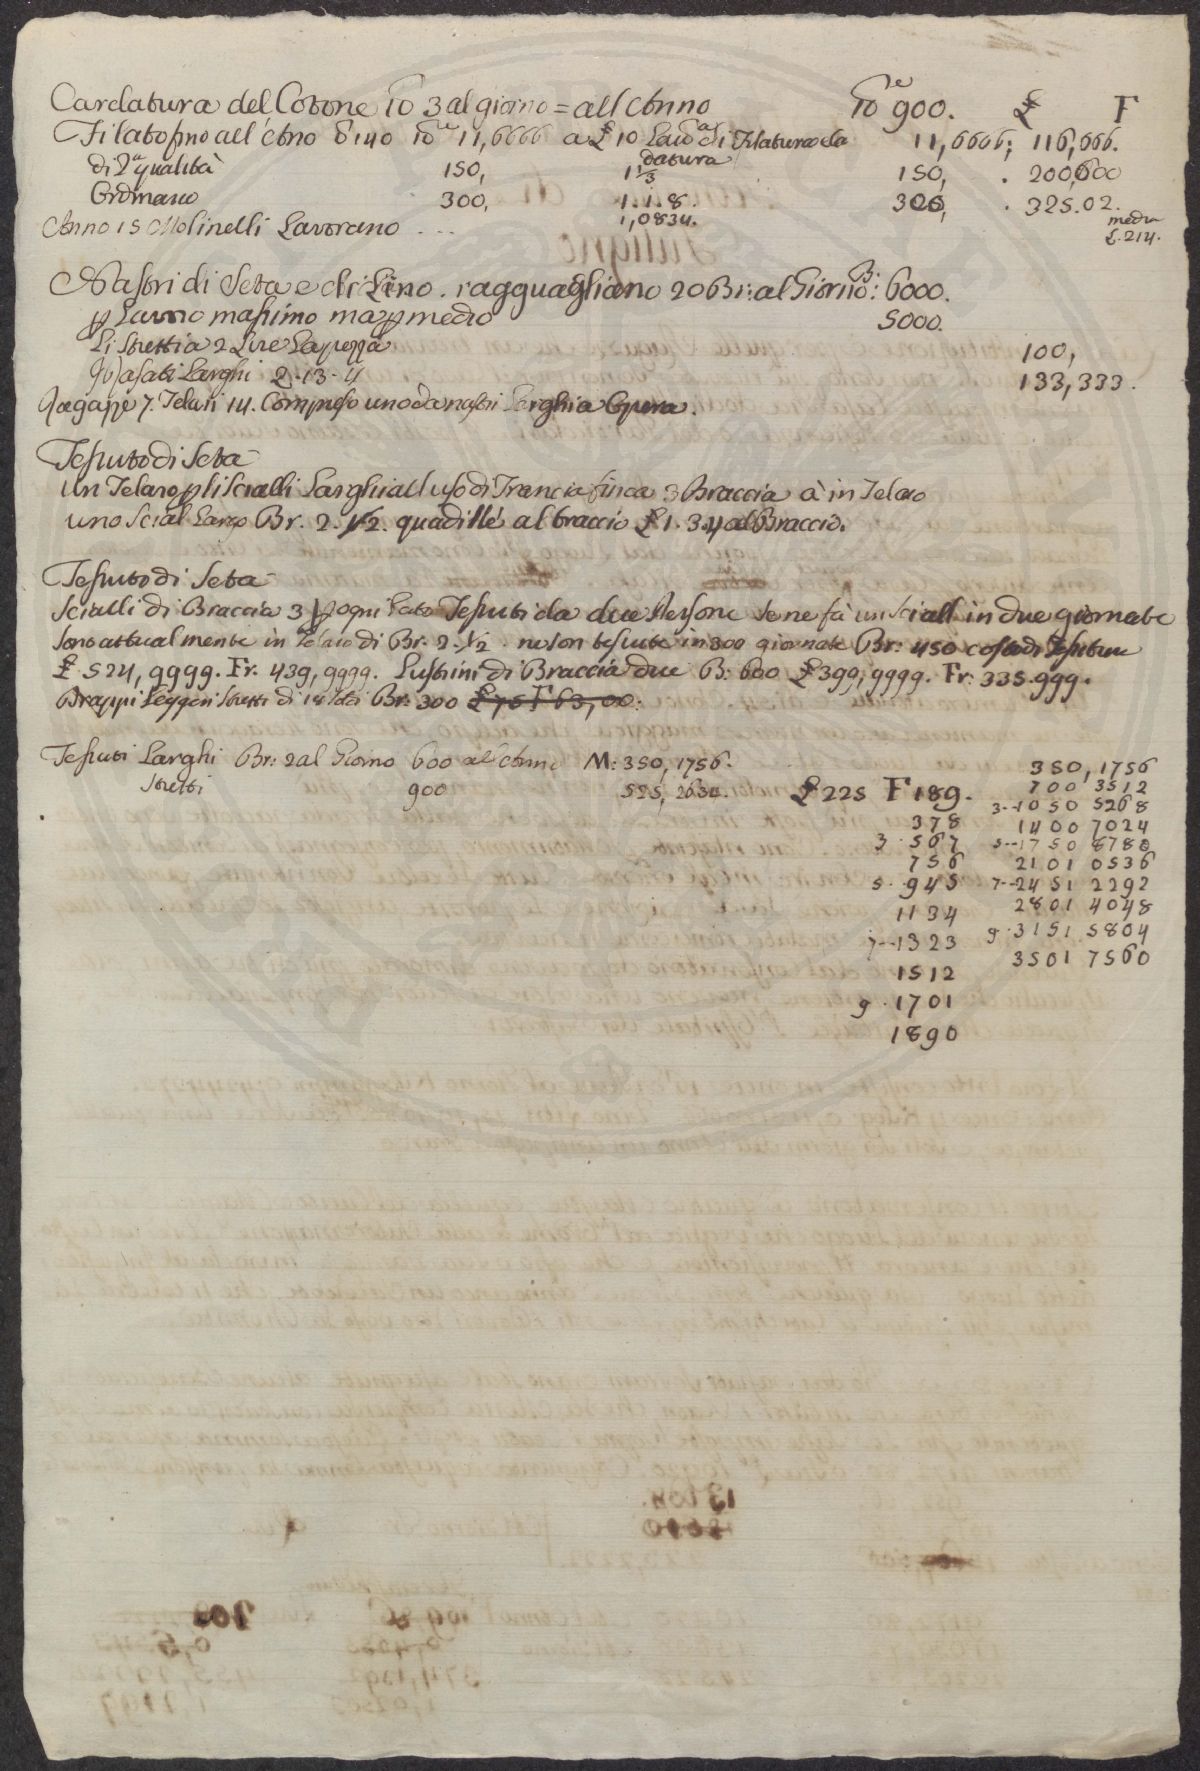 Cardatura del Cotone lb 3 al giorno = all'Anno lb.e 900. £ F
Filato fino all'Anno 140 lb.e 11,6666 a £ 10 Filatura 11,6666; 116,666.
di 2a qualità 150, 1 1/3 datura 150, . 200,000
Ordinario 300, 1.1.8. 300, . 325.02.
Anno 15 Molinelli Lavorano ... 1,0834. media £. 214.
Nastri di Seta e di Lino. ragguagliano 20 Br: al Giorno: B: 6000.
p Lavoro massimo ma p medio 5000.
Li Stretti a 2 Lire La pezza 100,
Larghi 2.13.4 133,333.
Ragazze 7. Telari 14. Compreso uno da nastri Larghi a Opera.
Tessuto di Seta
Un Telaro p li Scialli Larghi all uso di Francia sino a 3 Braccia à in Telaro
uno Scial Largo Br. 2. 1/2. quadille al braccio £ 1. 3.4 al Braccio.
Tessuto di Seta
Scialli di Braccia 3 p ogni Lato Tessuti da due Persone Se ne fà un Sciall in due giornate
Sono attualmente in Telaio di Br. 2. 1/2. ne son tessute in 300 giornate Br: 450 costo di Tessitura
£ 524,9999. Fr. 439,9999. Lustrini di Braccia due B: 600 £ 399,9999. Fr: 335.999.
Drappi Leggeri Stretti di Br: 300 £ 75 F 63,00:
Tessuti Larghi Br: 2 al Giorno 600 all'Anno M: 350,1756.
Stretti 900 525,2634. £ 225 F 189.
378
3. 567
756
5. 945
1134
7--1323
1512
9. 1701
1890
350,1756
700 3512
3--1050 5268
1400 7024
5--1750 8780
2101 0536
7--2451 2292
2801 4048
9. 3151.5804
3501 7560